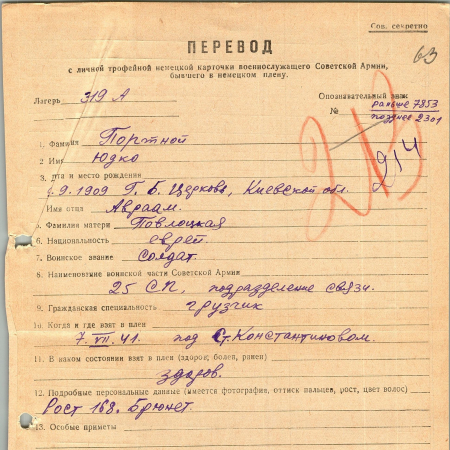 Сов. секретно
63
ПЕРЕВОД
с личной трофейной немецкой карточки военнослужащего Советской Армии,
бывшего в немецком плену.
Лагерь 319 А
Опознавательный знак
№ раньше 7853
позднее 2301
1. Фамилия Портной
2. Имя Юдко
214
3. Дата и место рождения
9.1909 Г. Б. Церковь, Киевской обл.
Имя отца Авраам.
5. Фамилия матери Повлоцкая
6. Национальность еврей.
7. Воинское звание солдат
8. Наименование воинской части Советской Армии
25 СП, подразделение связи.
9. Гражданская специальность грузчик
10. Когда и где взят в плен
7. VII. 41. под Ст. Константиновом.
11. В каком состоянии взят в плен (здоров, болен, ранен)
здоров.
12. Подробные персональные данные (имеется фотография, оттиск пальцев, рост, цвет волос)
Рост 168. Брюнет.
13. Особые приметы